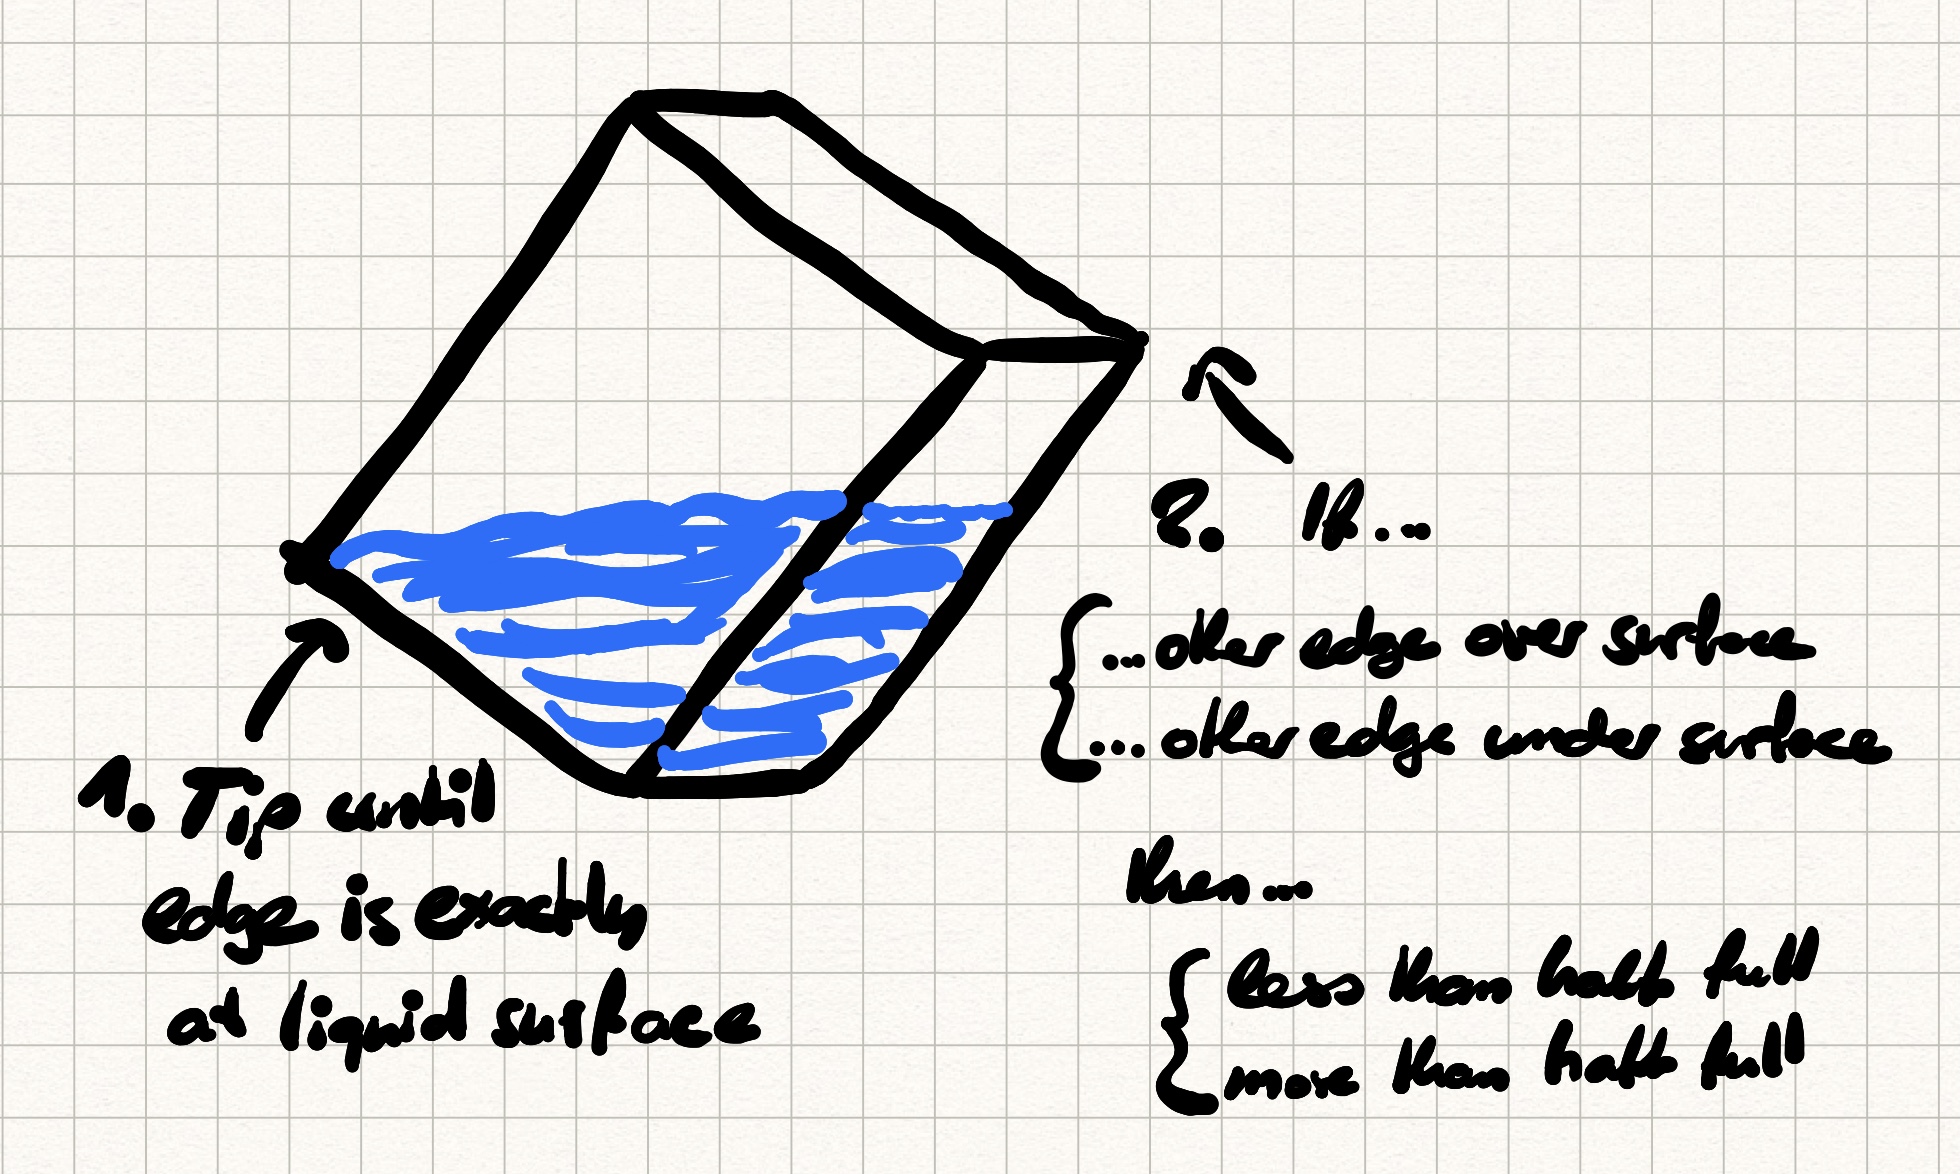 1. Tip until
edge is exactly
at liquid surface
2. If...
...other edge over surface
...other edge under surface
then...
less than half full
more than half full